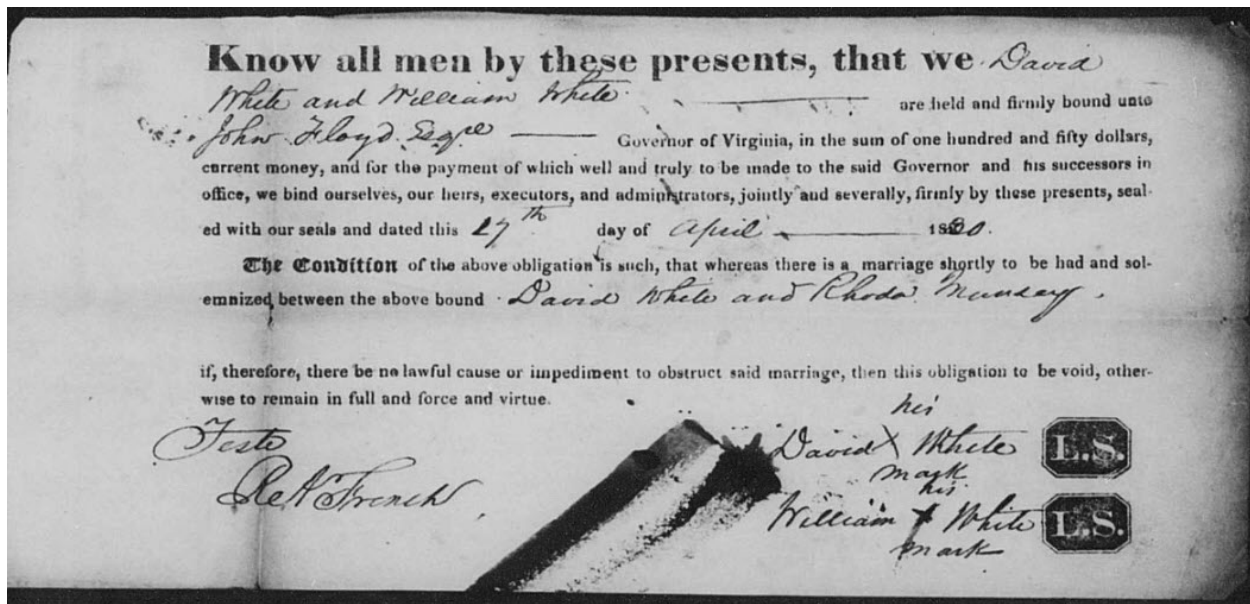 Know all men by these presents, that we David
White and William White are held and firmly bound unto
John Floyd Esqre Governor of Virginia, in the sum of one hundred and fifty dollars,
current money, and for the payment of which well and truly to be made to the said Governor and his successors in
office, we bind ourselves, our heirs, executors, and administrators, jointly and severally, firmly by these presents, seal-
ed with our seals and dated this 27th day of April 1830.
The Condition of the above obligation is such, that whereas there is a marriage shortly to be had and sol-
emnized between the above bound David White and Rhoda Munsey.
if, therefore, there be no lawful cause or impediment to obstruct said marriage, then this obligation to be void, other-
wise to remain in full and force and virtue.
his
Teste
David X White L.S.
mark
French
his
William X White L.S.
mark